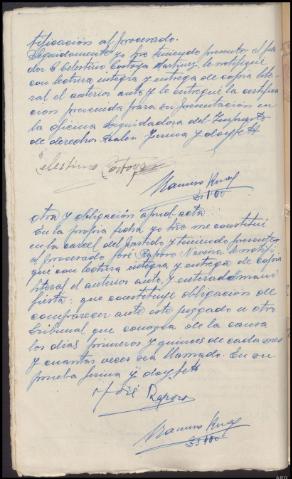 tificación al procesado.
Seguidamente yo pre teniendo presente el fia
dor D Celestino Cortoya Martinez, le notifiqué
con lectura integra y entrega de copia lite-
ral el anterior auto y le entregué la certifica
ción prevenida para su presentación en
la oficina liquidadora del Impuesto
de derechos Reales Firma y doy fe
Celestino Cortoya
otra y obligación apud acta
En la propia fecha yo me constitui
en la carcel del partido y teniendo presente
al procesado José Raposo le notifi
qué con lectura integra y entrega de copia
literal el anterior auto, y enterado mani
fiesta: que constituye obligación de
comparecer ante este juzgado u otro
tribunal que conozca de la causa
los dias primeros y quince de cada mes
y cuantas veces sea llamado. En su
prueba firma y doy fe
José Raposo